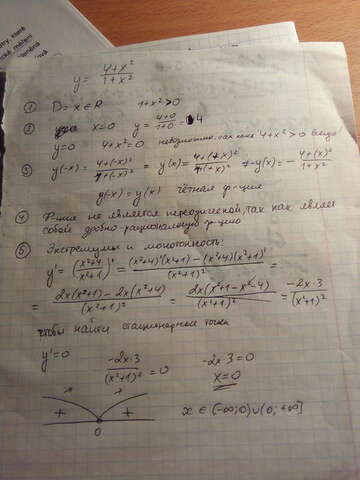 y = (4+x²)/(1+x²)
① D = x ∈ R 1+x² > 0
② x=0 y = (4+0)/(1+0) = 4
y=0 4+x²=0 невозможно, так как 4+x² > 0 всегда!
③ y(-x) = (4+(-x)²)/(1+(-x)²) = y(x) = (4+(x)²)/(1+(x)²) ≠ -y(x) = -(4+(x)²)/(1+x²)
y(-x) = y(x) чётная ф-ция
④ Ф-ция не является периодической, так как являет
собой дробно-рациональную ф-цию
⑤ Экстремумы и монотонность:
y' = ((x²+4)/(x²+1))' = ((x²+4)'(x²+1) - (x²+4)(x²+1)')/(x²+1)² =
= (2x(x²+1) - 2x(x²+4))/(x²+1)² = (2x(x²+1-x²-4))/(x²+1)² = (-2x·3)/(x²+1)²
чтобы найти стационарные точки
y'=0 (-2x·3)/(x²+1)² = 0 -2x·3=0
x=0
+ +
0
x ∈ (-∞;0)∪(0;+∞)